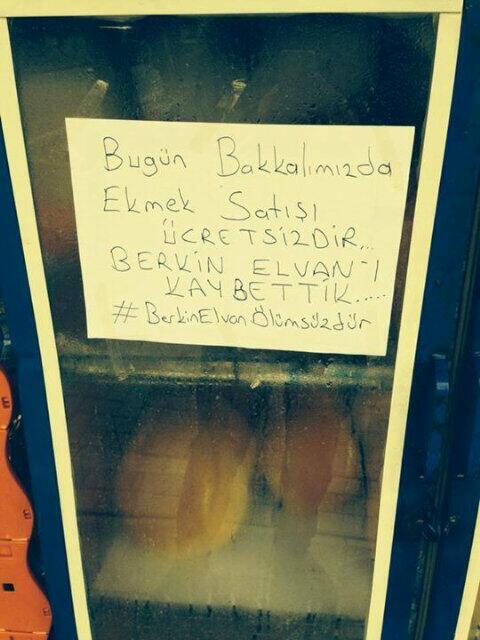 Bugün Bakkalımızda
Ekmek Satışı
ÜCRETSİZDİR...
BERKİN ELVAN'I
KAYBETTİK.....
#BerkinElvanÖlümsüzdür